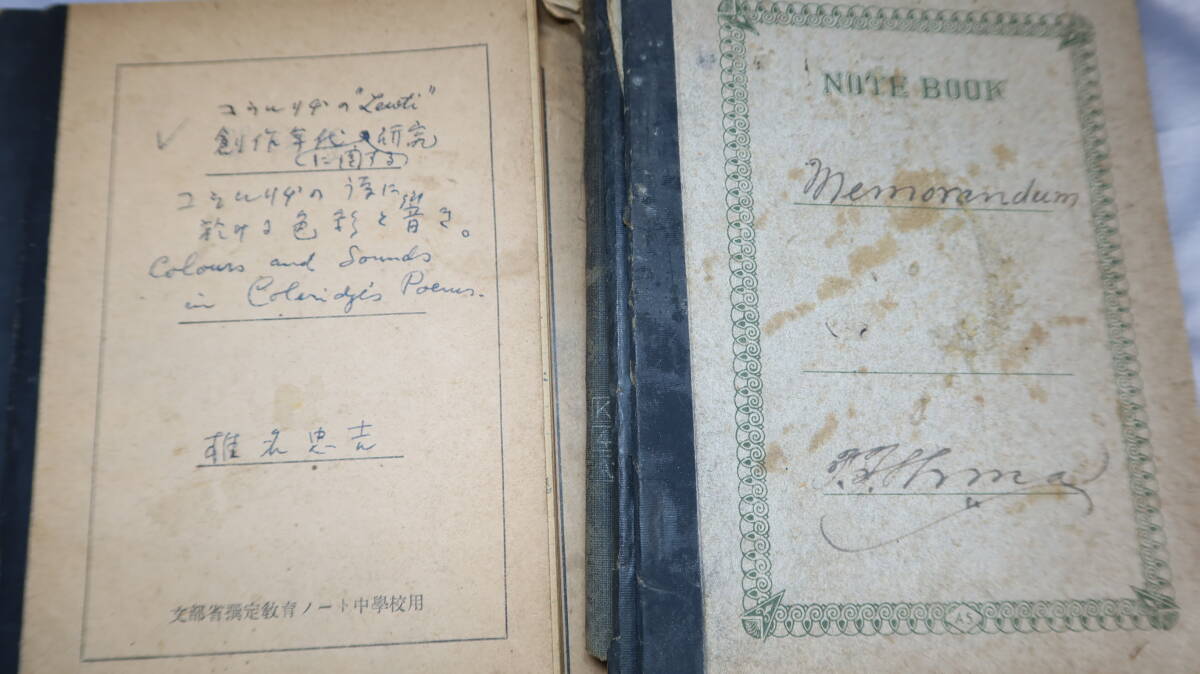 コウルリヂの "Lewti"
創作年代研究
(に関する)
コウルリヂの詩に
於ける色彩と音響。
Colours and Sounds
in Coleridge's Poems.
椎名忠吉
文部省撰定教育ノート中學校用
NOTE BOOK
Memorandum
A5